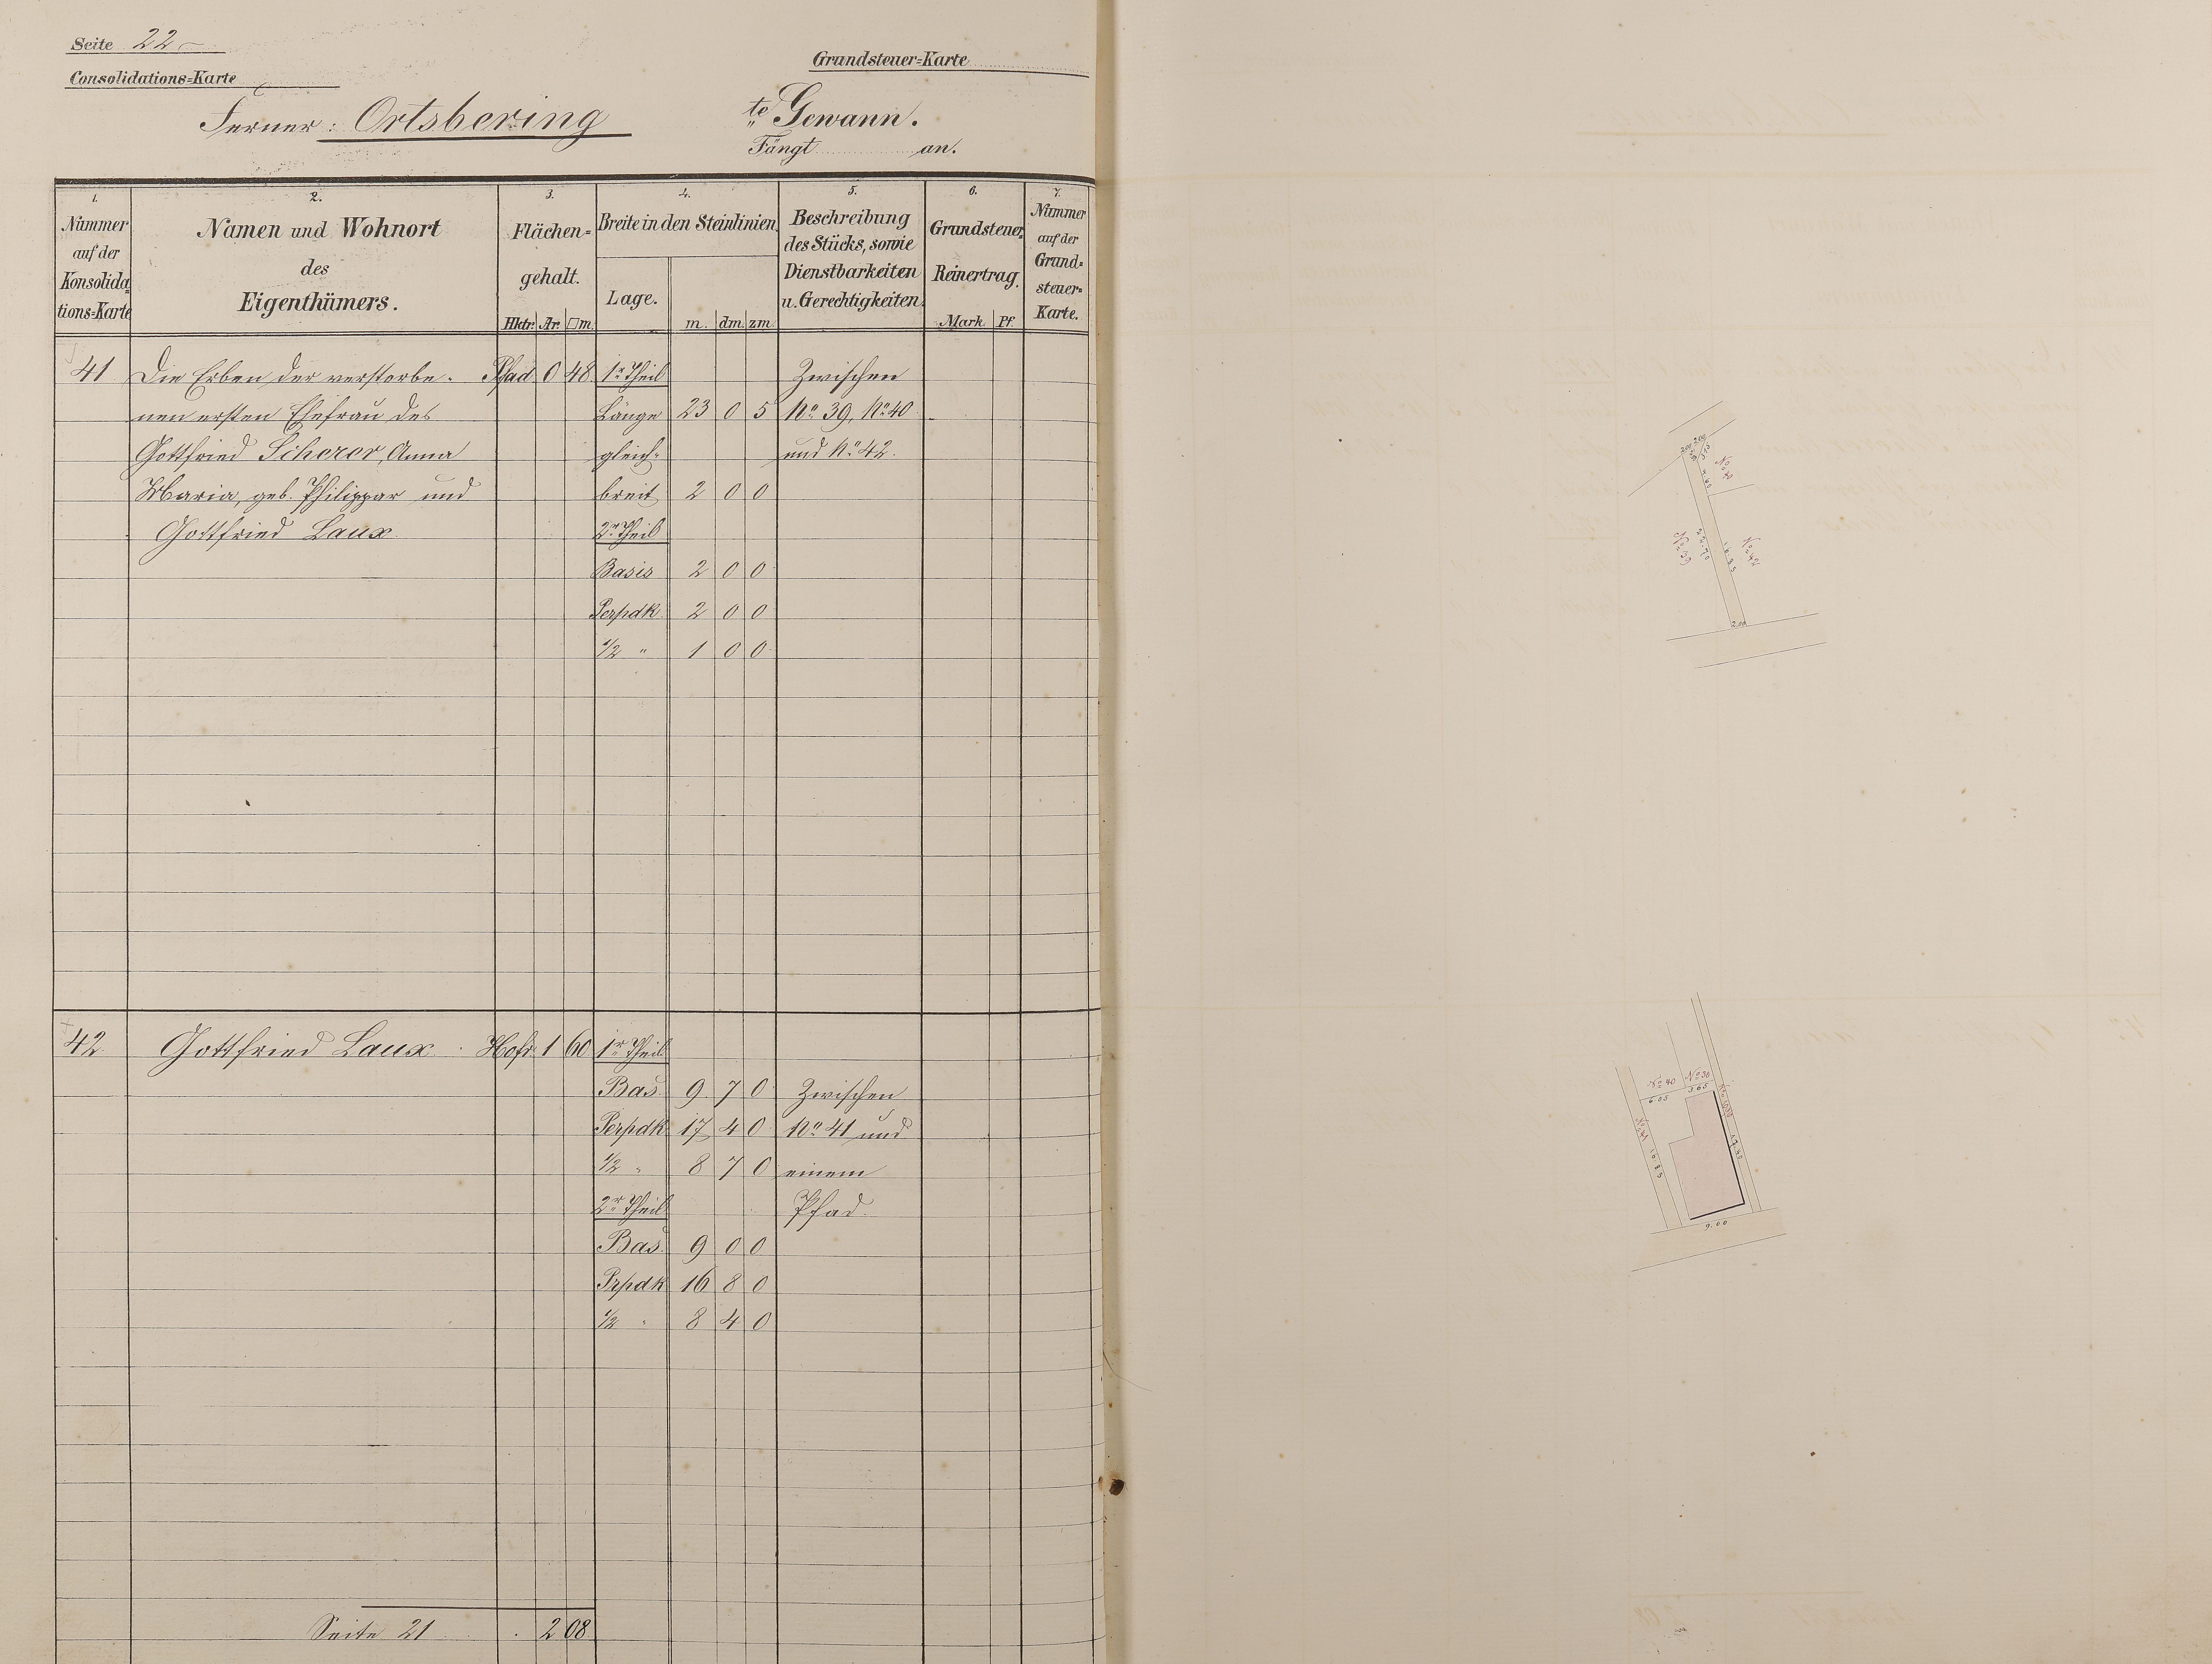 Seite 22
Consolidations=Karte
Grundsteuer=Karte
Ferner: Ortsbering
te Gewann.
Fängt an.
1. 2. 3. 4. 5. 6. 7.
Nummer auf der Konsolidations=Karte
Namen und Wohnort des Eigenthümers.
Flächen=gehalt.
Hktr. Ar. □m.
Breite in den Steinlinien
Lage. m. dm. zm.
Beschreibung des Stücks, sowie Dienstbarkeiten u. Gerechtigkeiten.
Grundsteuer Reinertrag.
Mark. Pf.
Nummer auf der Grund=steuer=Karte.
41 Die Erben der verstorbe- Pfad 0 48 1r Theil Zwischen
nen ersten Ehefrau des Länge 23 0 5 No 39, No 40
Gottfried Scherer, Anna gleich= und No 42.
Maria, geb. Philippar und breit 2 0 0
Gottfried Laux 2r Theil
Basis 2 0 0
Perpdk. 2 0 0
1/2 " 1 0 0
42 Gottfried Laux Hofr. 1 60 1r Theil
Bas. 9 7 0 Zwischen
Perpdk. 17 4 0 No 41 und
1/2 " 8 7 0 einem
2r Theil Pfad.
Bas. 9 0 0
Prpdk 16 8 0
1/2 " 8 4 0
Seite 21 . 2 08
2.00
No 42
No 39
16.85
2.00
No 40
6.05
3.65
No 41
16.85
17.40
9.00